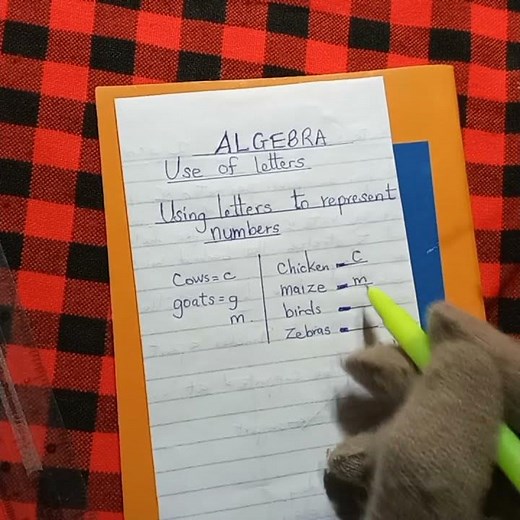 ALGEBRA
Use of letters
Using letters to represent
numbers
Cows = c
goats = g
m
Chicken - C
maize - m
birds -
Zebras -